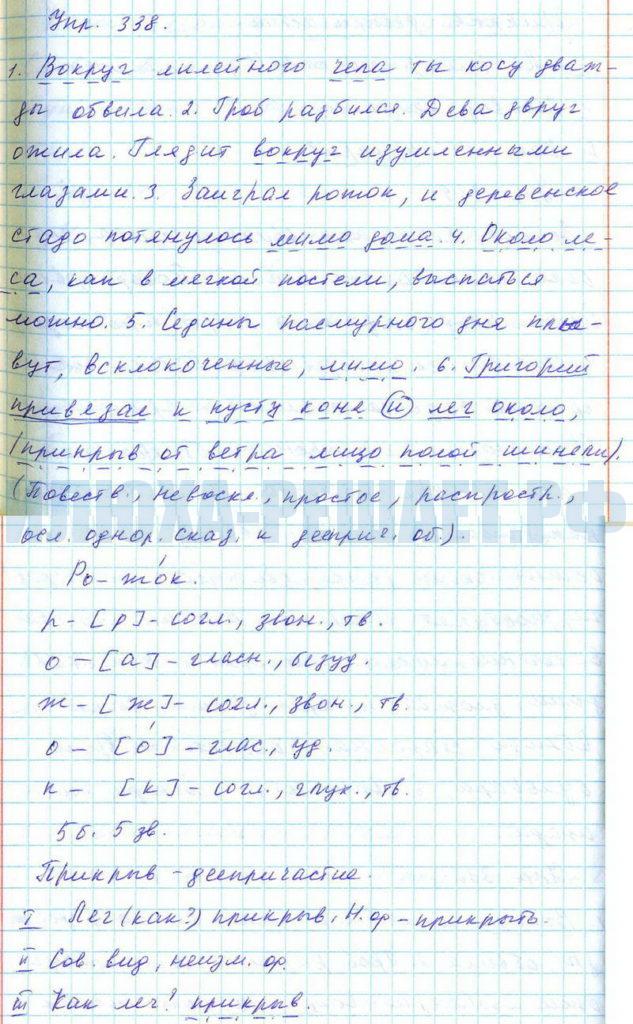 Упр. 338.
1. Вокруг лилейного чела ты косу дваж-
ды обвила. 2. Гроб разбился. Дева вдруг
ожила. Глядит вокруг изумленными
глазами. 3. Заиграл рожок, и деревенское
стадо потянулось мимо дома. 4. Около ле-
са, как в мягкой постели, выспаться
можно. 5. Седины пасмурного дня плы-
вут, всклокоченные, мимо. 6. Григорий
привязал к кусту коня и лег около,
(прикрыв от ветра лицо полой шинели).
(Повеств., невоскл., простое, распростр.,
осл. однор. сказ. и дееприч. об.).
Ро-жо́к.
р - [р] - согл., звон., тв.
о - [а] - гласн., безуд.
ж - [ж] - согл., звон., тв.
о - [о́] - глас., уд.
к - [к] - согл., глух., тв.
5 б. 5 зв.
Прикрыв - деепричастие.
I Лег (как?) прикрыв, Н.ф - прикрыть.
II Сов. вид, неизм. ф.
III Как лег? прикрыв.